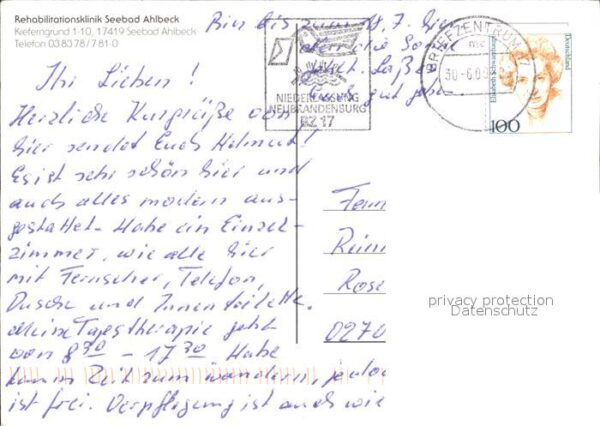 Rehabilitationsklinik Seebad Ahlbeck
Kieferngrund 1-10, 17419 Seebad Ahlbeck
Telefon 03 83 78 / 7 81-0
Bin bis zum 18.7. hier
die Sonne
Laßt
Euch gut gehen
Ihr Lieben!
Herzliche Kurgrüße von
hier sendet Euch Helmut!
Es ist sehr schön hier und
auch alles modern aus-
gestattet. Habe ein Einzel-
zimmer, wie alle hier
mit Fernseher, Telefon,
Dusche und Innentoilette.
Meine Tagestherapie geht
von 8 30 - 17 30. Habe
kaum Zeit zum wandern, jedoch
ist frei. Verpflegung ist auch wie
NIEDERLASSUNG
NEUBRANDENBURG
BZ 17
BRIEFZENTRUM 17
mc
30-6.00
Deutschland
Elisabeth Schwarzhaupt
100
Fam
Reim
Rose
0270
privacy protection
Datenschutz